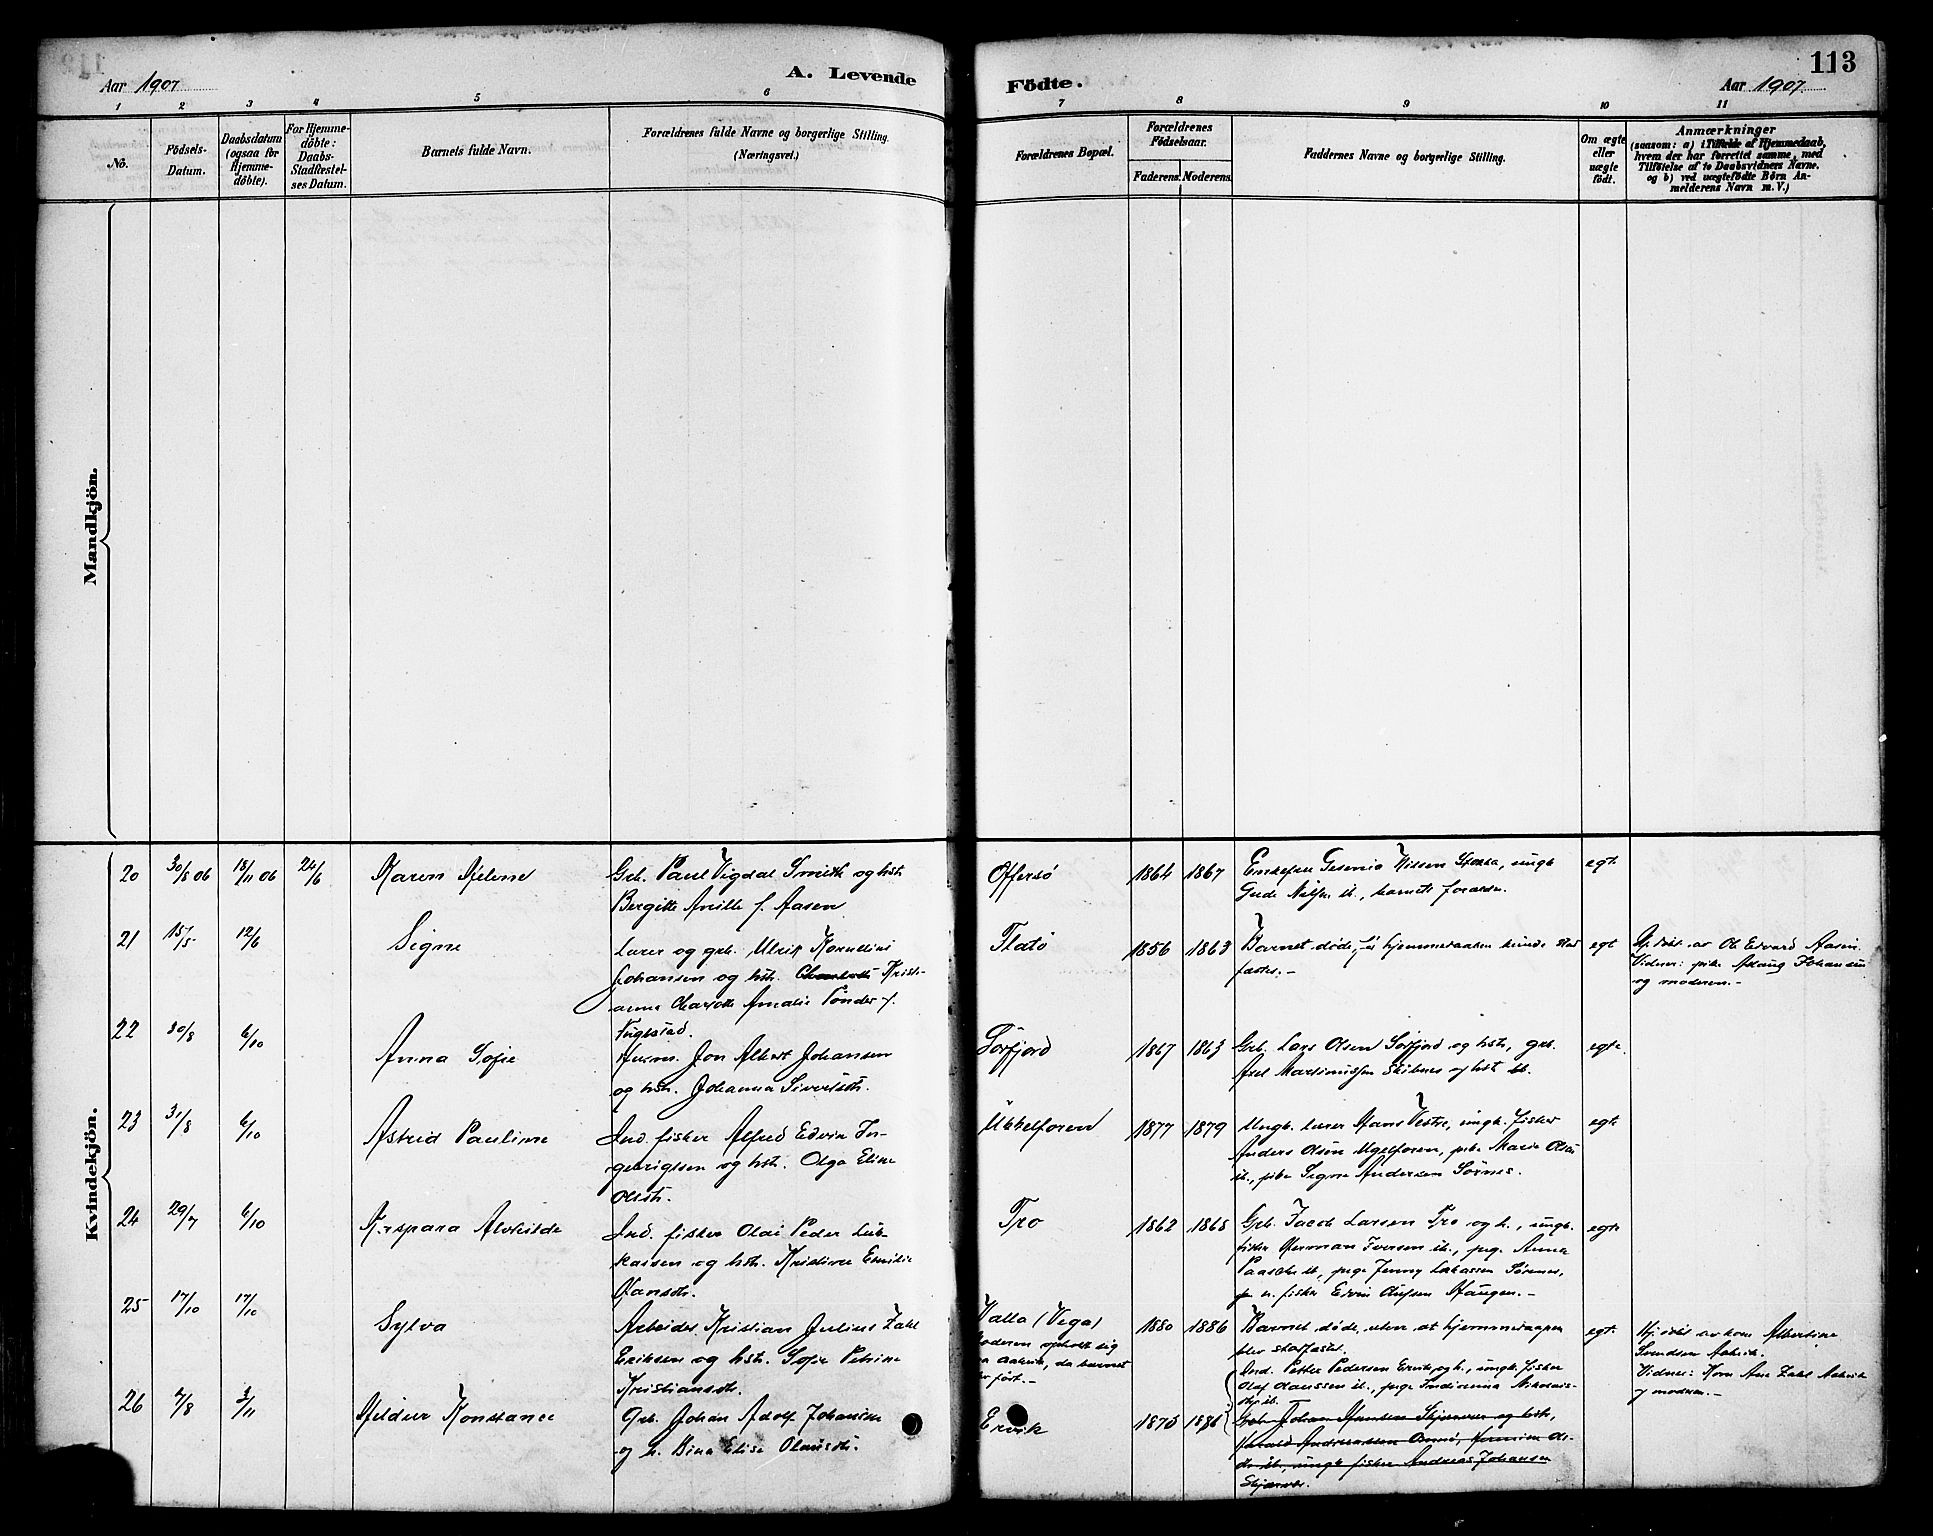 Aar 1907
A. Levende
Födte.
113
Aar 1907.
1 2 3 4 5 6 7 8 9 10 11
No.
Födsels-
Datum.
Daabsdatum
(ogsaa for
Hjemme-
döbte).
For Hjemme-
döbte:
Daabs-
Stadfæstel-
ses Datum.
Barnets fulde Navn.
Forældrenes fulde Navne og borgerlige Stilling.
(Næringsvei.)
Forældrenes Bopæl.
Forældrenes
Födselsaar.
Faderens. Moderens.
Faddernes Navne og borgerlige Stilling.
Om ægte
eller
uægte
födt.
Anmærkninger
(saasom: a) i Tilfælde af Hjemmedaab,
hvem der har forrettet samme, med
Tilföielse af to Daabsvidners Navne.
og b) ved uægtefödte Börn An-
melderens Navn m. V.)
Mandkjön.
Kvindekjön.
20 30/8 06 18/11 06 24/6 Karen Helene
Grb. Paul Vigdal Smith og hst.
Bergitte f. Aasen
Offersø 1864 1867
Nilsen ungk.
ib., barnets forældre.
egt.
21 15/5 12/6 Signe
Lærer og grb. Ulrik Kornelius
Johansen og hst. Kristi-
anna Charlotte Amalie Tønder f.
Flatø 1856 1863
Barnet døde, før hjemmedaaben kunde stad
fæstes.-
egt
Hj. døbt av Ol. Edvard Aasen.
Vidner: pike Johansen
og moderen.-
22 30/8 6/10 Anna Sofie
Jon Albert Johansen
og hst. Johanna Sivertsdtr.
Sørfjord 1867 1863
Grb. Lars Olsen Sørfjord og hst., grb.
Axel Martinussen og hst ib.
egte.
23 31/8 6/10 Astrid Pauline
Ind. fisker Alfred Edvin In-
gebrigtsen og hst. Olga Eline
Olsdtr.
1877 1879
Ungk. lærer Hans Vestre, ungk. fisker
Anders Olsen pike Marie Olsen
ib., pike Signe Andersen Sørnes.
egt.
24 29/7 6/10 Kaspara Alvhilde
Ind. fisker Olai Peder Luk-
kassen og hst. Kristine Emilie
Hansdtr.
Tro 1862 1868
Grb. Jacob Larsen Tro og h., ungk.
fisker Herman Iversen ib., pige Anna
ib, pige Jenny Lukassen Sørenes,
fisker Edvin Olufsen Haugen.-
egte
25 17/10 17/10 Sylva
Arbeider Kristian Julius Zahl
Eriksen og hst. Sofie Petrine
Kristiansdtr.
Valla (Vega)
oderen opholdt sig
da barnet
født.-
1880 1886
Barnet døde, uten at hjemmedaapen
blev stadfæstet.
egt.
Hj. døbt av kone Albertine
Svendsen
Vidner: Kone Ane Zahl
og moderen.-
26 3/11 Konstance
Grb. Johan Adolf Johansen
og h. Dina Elise Olausdtr.
Ervik 1875 1886
Ind. Petter Pedersen Ervik og h., ungk. fisker
Olaf Olaussen ib., pige Nikolais-
dtr. ib.
Grb. Johan Hansen og hst,
Harald Andreassen
ib., ungk fisker Andreas Johansen